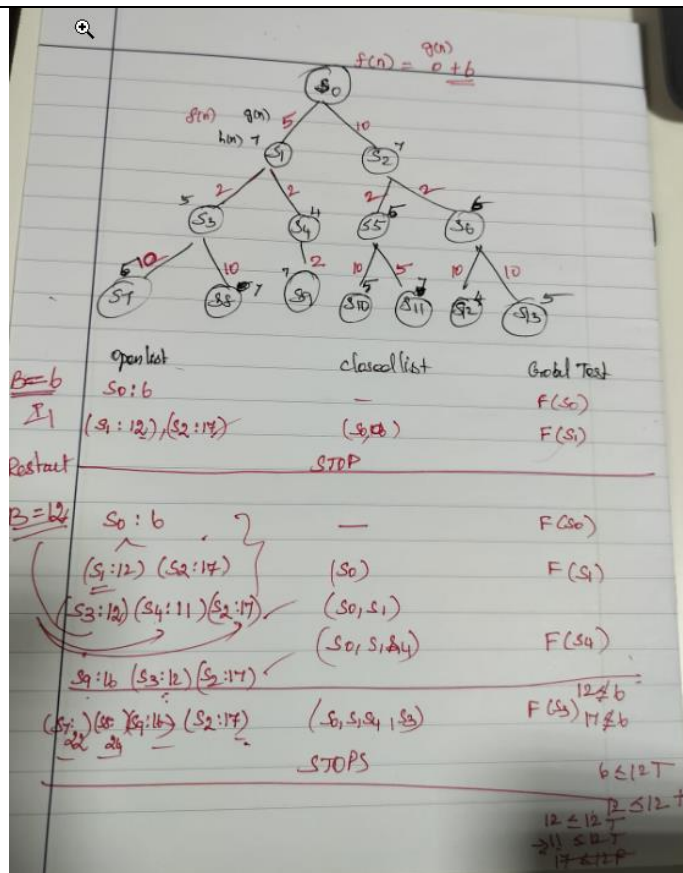 g(n)
f(n) = 0 + 6
S0
f(n) g(n) 5 10
h(n) 7 S1 S2 7
2 2 2 2
5 S3 S4 4 S5 6 S6 6
10 10 2 10 5 10 10
6 S7 S8 7 7 S9 S10 5 S11 7 S12 4 S13 5
Open list closed list Goal Test
B=6 S0:6 — F(S0)
I1 (S1:12),(S2:17) F(S1)
Restart STOP
B=12 S0:6 — F(S0)
(S1:12) (S2:17) (S0) F(S1)
(S3:12)(S4:11)(S2:17) (S0,S1)
(S0,S1,S4) F(S4)
S9:16 (S3:12)(S2:17)
12≰6
(S7: )(S8: )(S9:16) (S2:17) (S0,S1,S4,S3) F(S3) 17≰6
22 24
STOPS
6≤12T
12≤12T
12≤12T
→11≤12T
17≤12F